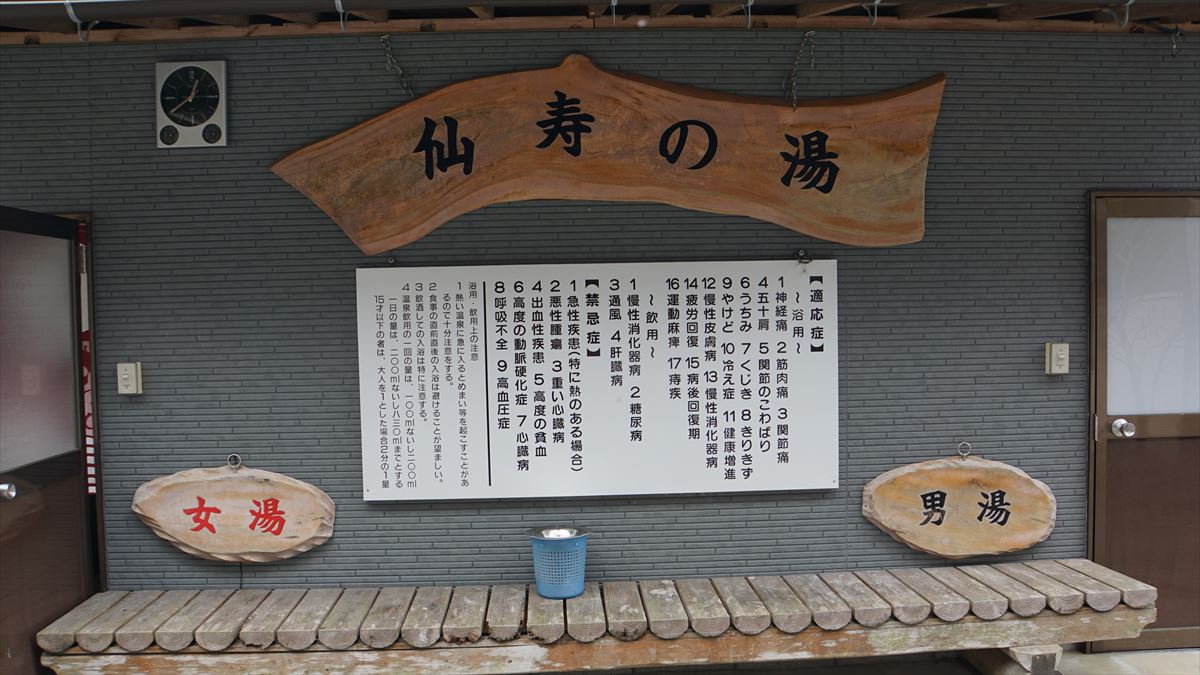 仙寿の湯
【適応症】
～浴用～
1神経痛 2筋肉痛 3関節痛
4五十肩 5関節のこわばり
6うちみ 7くじき 8きりきず
9やけど 10冷え症 11健康増進
12慢性皮膚病 13慢性消化器病
14疲労回復 15病後回復期
16運動麻痺 17痔疾
～飲用～
1慢性消化器病 2糖尿病
3通風 4肝臓病
【禁忌症】
1急性疾患(特に熱のある場合)
2悪性腫瘍 3重い心臓病
4出血性疾患 5高度の貧血
6高度の動脈硬化症 7心臓病
8呼吸不全 9高血圧症
浴用・飲用上の注意
1 熱い温泉に急に入るとめまい等を起こすことがあ
るので十分注意をする。
2 食事の直前直後の入浴は避けることが望ましい。
3 飲酒しての入浴は特に注意する。
4 温泉飲用の一回の量は、一〇〇mlないし二〇〇ml
一日の量は、二〇〇mlないし八三〇mlまでとする
15才以下の者は、大人を1とした場合2分の1量
女湯
男湯